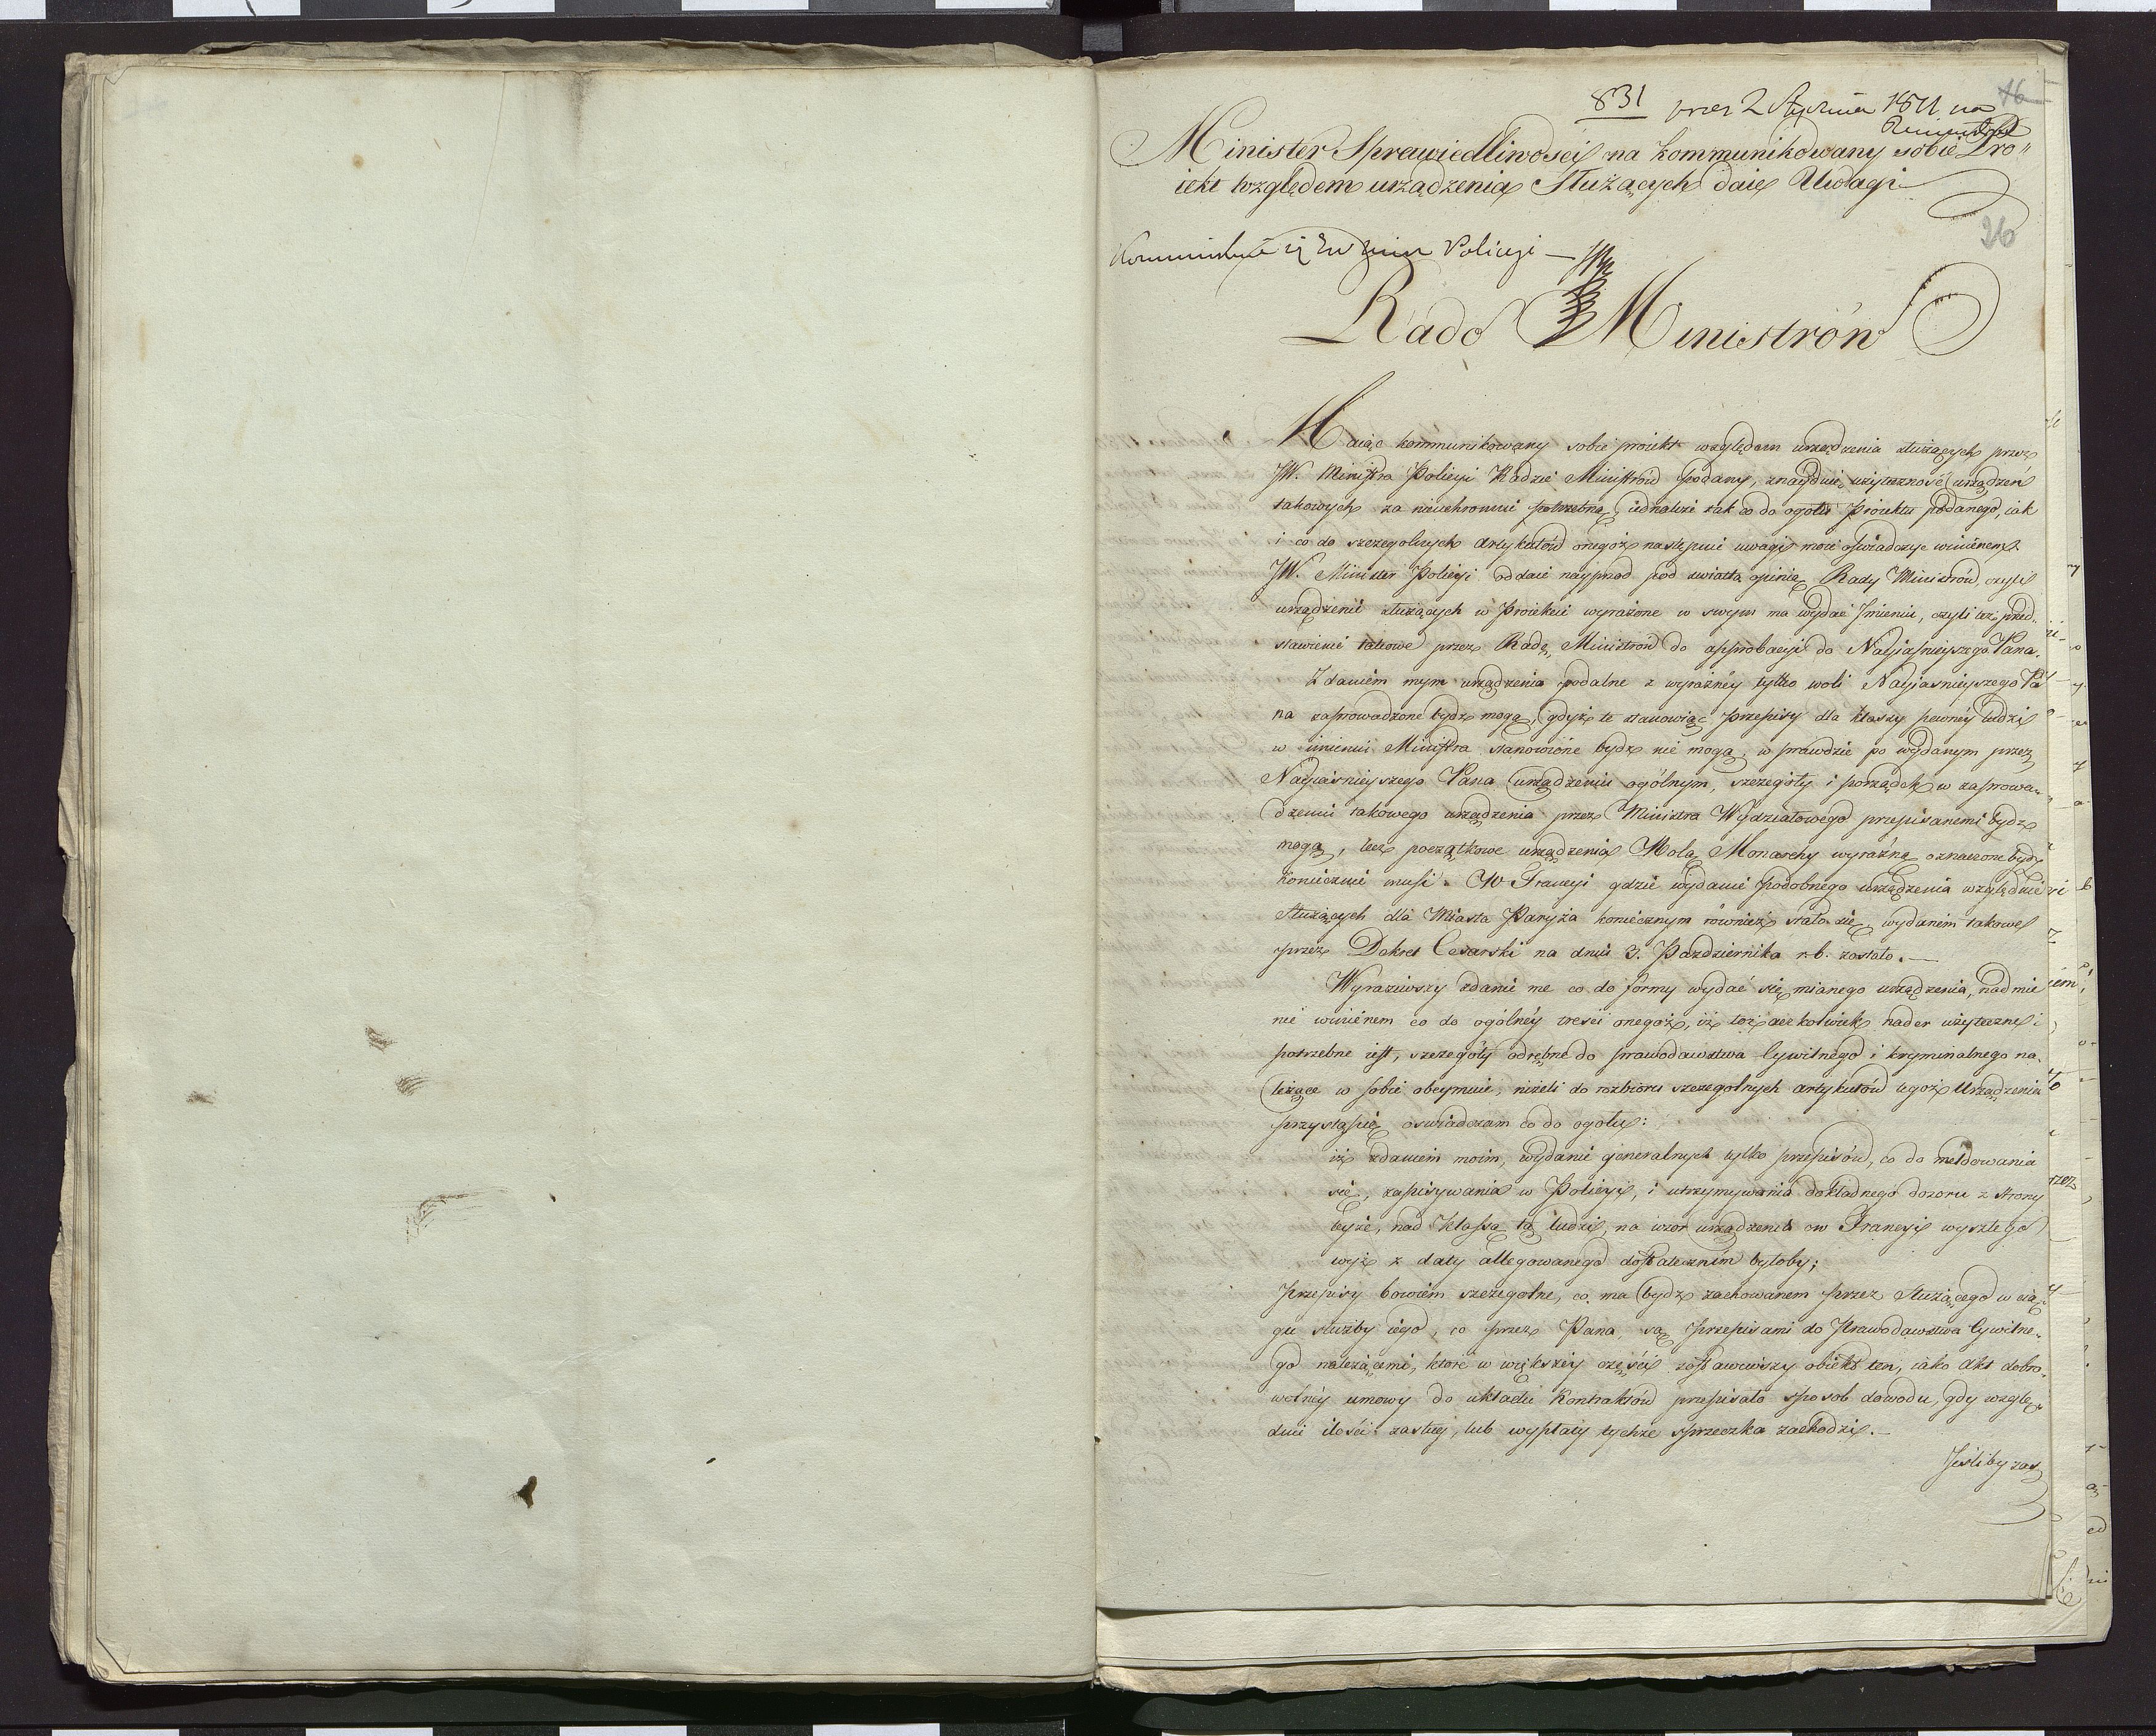 831 prez 2 Stycznia 1811 na
16
Minister Sprawiedliwości na kommunikowany sobie Pro„
iekt względem urządzenia Służących daie Uwagi
26
Policyi —
Rado Ministrów
Maiąc kommunikowany sobie proiekt względem urządzenia służących przez
JW. Ministra Policyi Radzie Ministrów podany, znayduię użyteczność urządzeń
takowych za nieuchronnie potrzebną, iednakże tak co do ogółu Proiektu podanego, iak
i co do szczegolnych artykułów onegoż następnie uwagi moie oświadczyć winienem.
JW. Minister Policyi oddaie nayprzod pod światłą opinią Rady Ministrów, czyli
urządzenie służących w Proiekcie wyrażone w swym ma wydać Imieniu, czyli też przed„
stawienie takowe przez Radę Ministrów do approbacyi do Nayiaśnieyszego Pana.
Zdaniem mym urządzenia podalne z wyraźnéy tylko woli Nayiasnieyszego Pa
na zaprowadzone bydź mogą, gdyż te stanowiąc przepisy dla klassy pewnéy ludzi
w imieniu Ministra stanowione bydź nie mogą; w prawdzie po wydanym przez
Nayiaśnieyszego Pana urządzeniu ogólnym, szczegóły i porządek w zaprowa„
dzeniu takowego urządzenia przez Ministra Wydziałowego przepisanemi bydź
mogą, lecz początkowe urządzenia Wolą Monarchy wyraźną oznaczone bydź
koniecznie musi. W Francyi gdzie wydanie podobnego urządzenia względnie
Służących dla Miasta Paryża koniecznym również stało się, wydanem takowe
przez Dekret Cesarski na dniu 3. Pazdziernika r. b. zostało. —
Wyraziwszy zdanie me co do formy wydać się mianego urządzenia, nadmie
nić winienem co do ogólnéy treści onegoż, iż toż acz kolwiek nader użyteczne i
potrzebne iest, szczegóły odrębne do prawodawstwa Cywilnego i kryminalnego na„
leżące w sobie obeymuie, niżeli do rozbioru szczegolnych artykułów tegoż Urządzenia
przystąpię oswiadczam co do ogołu:
iż zdaniem moim, wydanie generalnych tylko przepisów, co do meldowania
się, zapisywania w Policyi, i utrzymywania dokładnego dozoru z strony
teyże, nad klassą tą ludzi, na wzor urządzenia w Francyi wyszłego
wyż z daty allegowanego dostatecznim byłoby;
Przepisy bowiem szczegolne, co ma bydź zachowanem przez Służącego w cią„
gu służby iego, co przez Pana, są przepisami do Prawodawstwa Cywilne„
go należącemi, które w większéy części zostawiwszy obiekt ten, iako akt dobro„
wolnéy umowy do układu Kontraktów przepisało sposob dowodu, gdy wzglę„
dnie ilości zasług, lub wypłaty tychże sprzeczka zachodzi. —
Jesliby zaś